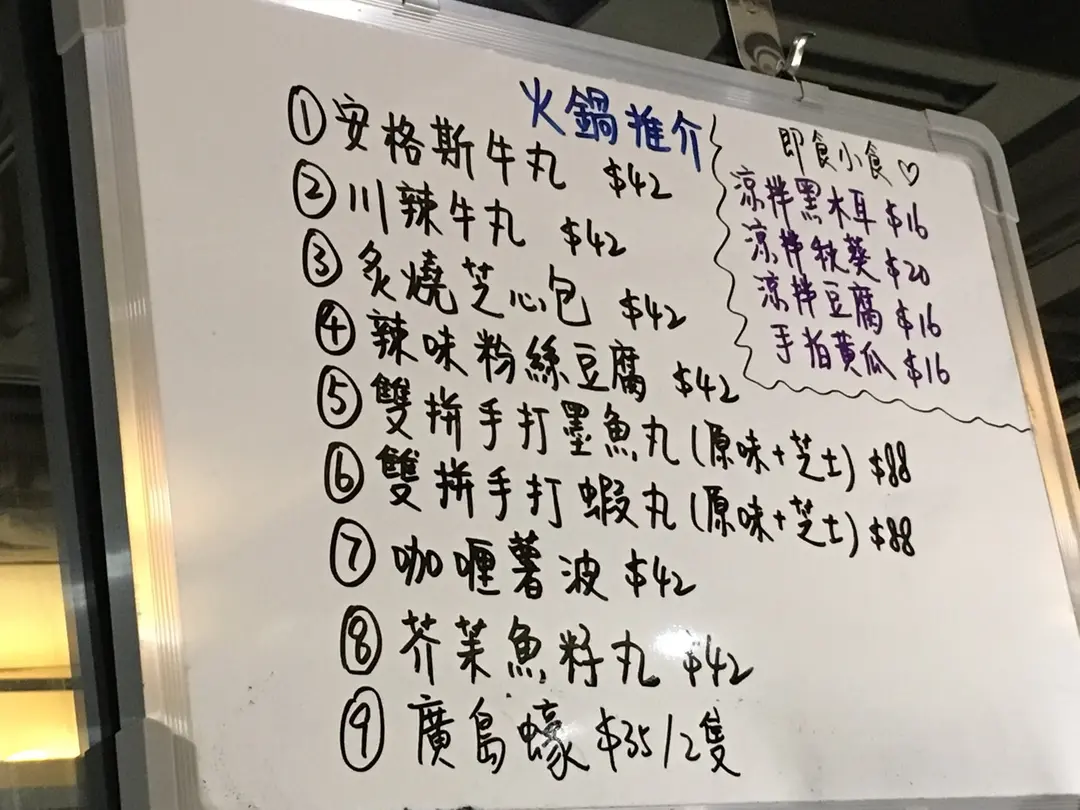 火鍋推介
①安格斯牛丸 $42
②川辣牛丸 $42
③炙燒芝心包 $42
④辣味粉絲豆腐 $42
⑤雙拼手打墨魚丸(原味+芝士) $88
⑥雙拼手打蝦丸(原味+芝士) $88
⑦咖喱薯波 $42
⑧芥茉魚籽丸 $42
⑨廣島蠔 $35/2隻
即食小食♡
涼拌黑木耳 $16
涼拌秋葵 $20
涼拌豆腐 $16
手拍黄瓜 $16